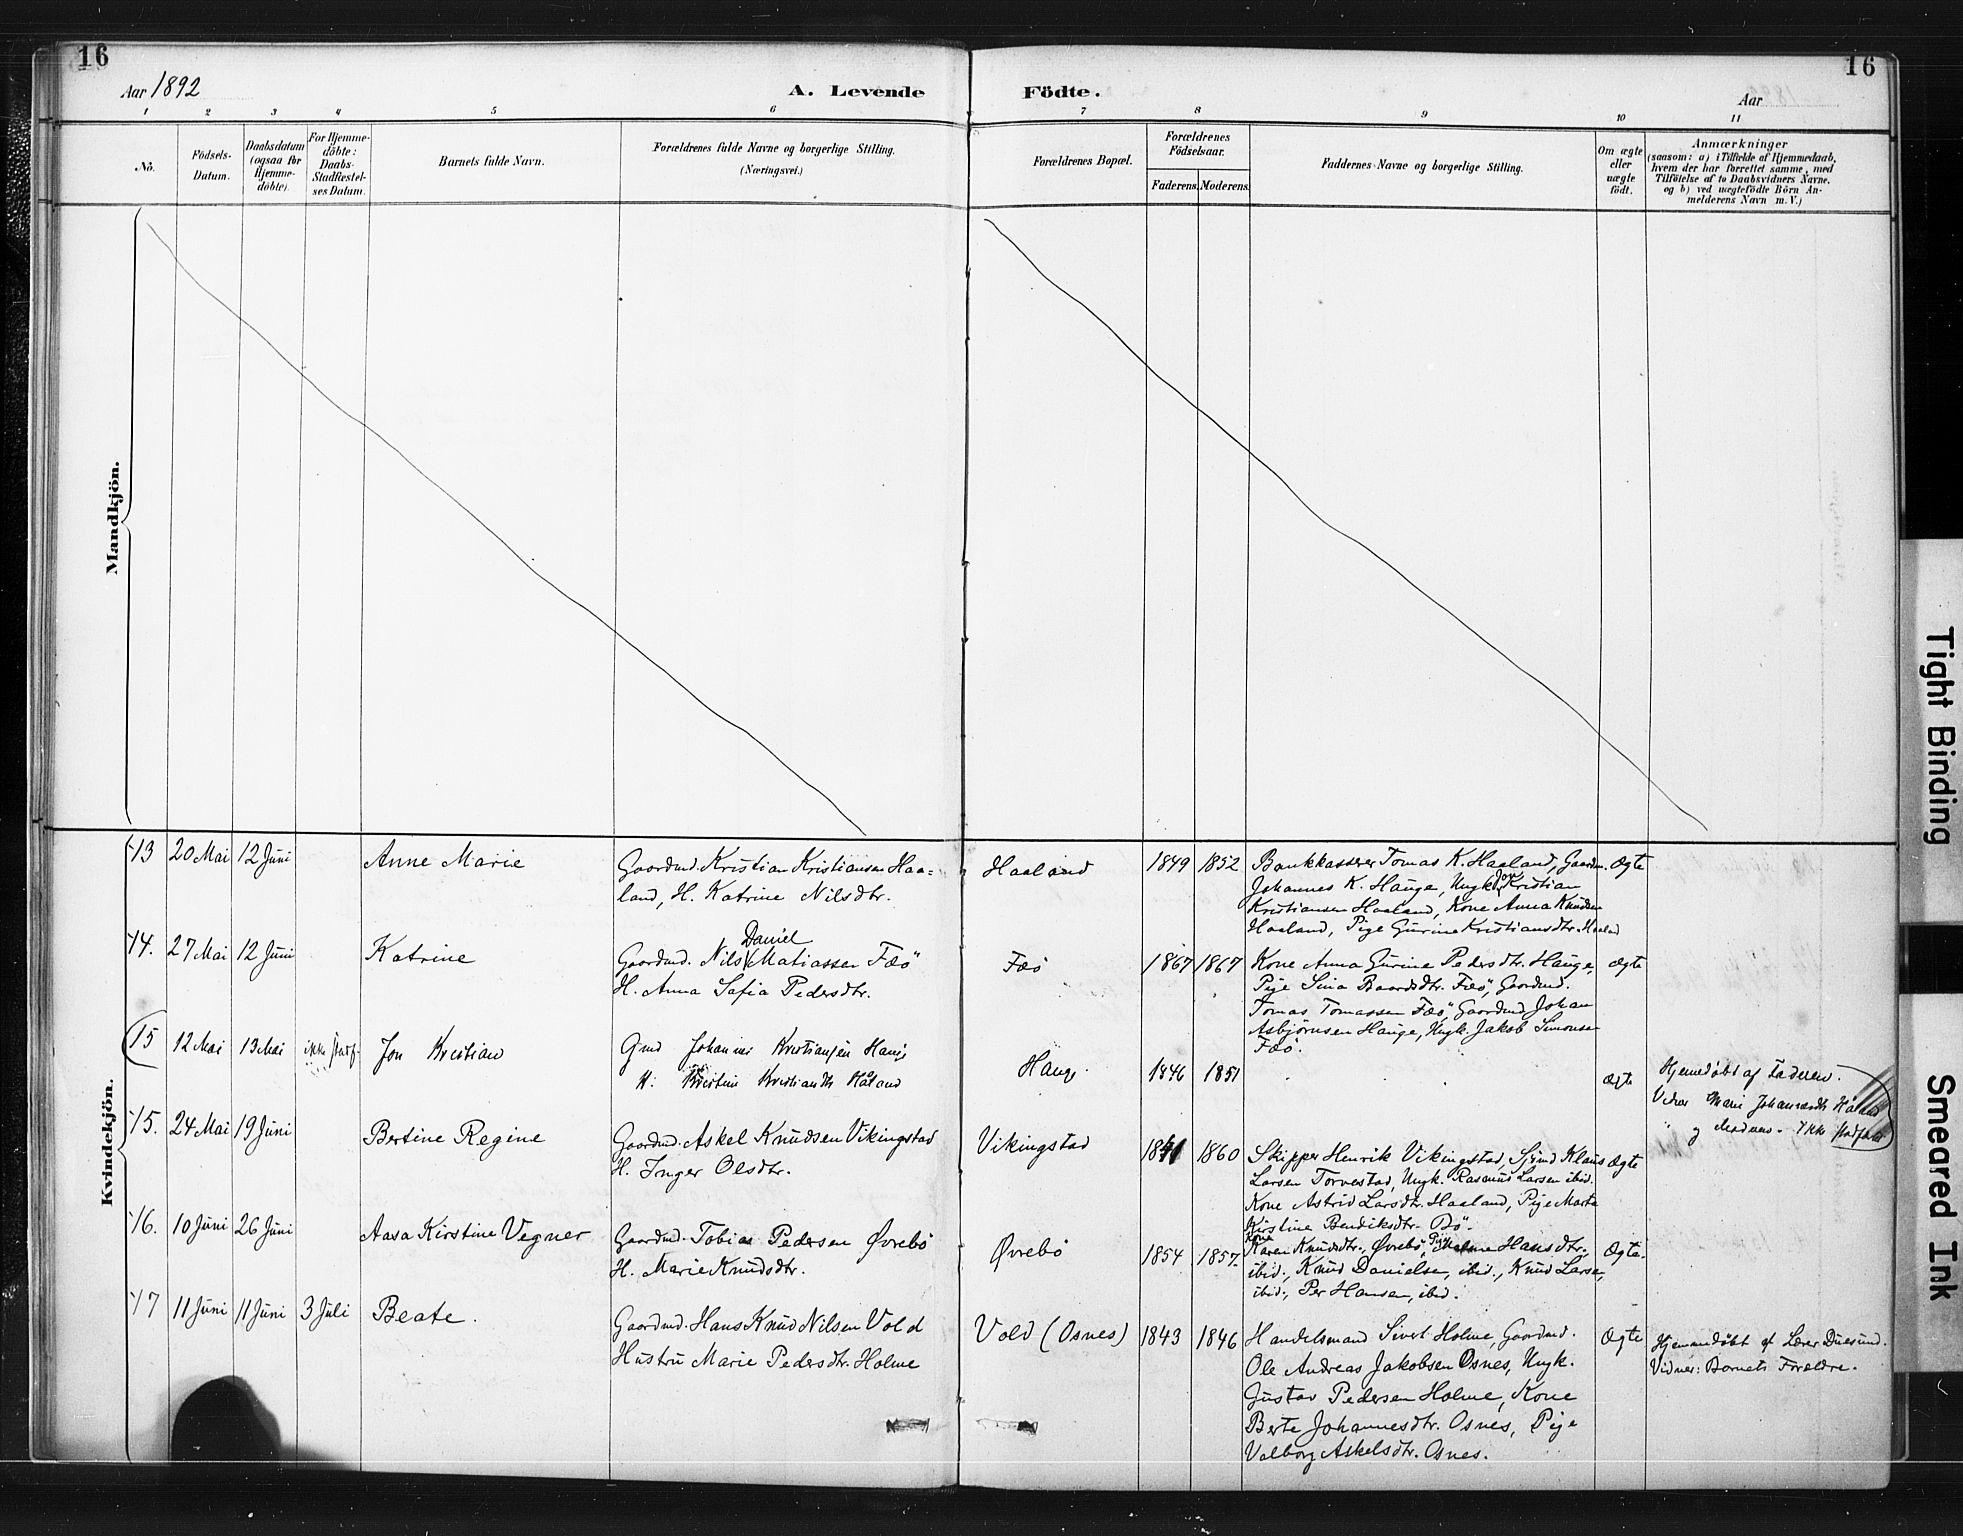 16
16
Aar 1892
A. Levende
Födte.
Aar
1 2 3 4 5 6 7 8 9 10 11
No.
Födsels-
Datum.
Daabsdatum
(ogsaa for
Hjemme-
döbte).
For Hjemme-
döbte:
Daabs-
Stadfæstel-
ses Datum.
Barnets fulde Navn.
Forældrenes fulde Navne og borgerlige Stilling.
(Næringsvei.)
Forældrenes Bopæl.
Forældrenes
Födselsaar.
Faderens. Moderens.
Faddernes Navne og borgerlige Stilling.
Om ægte
eller
uægte
født.
Anmærkninger
(saasom: a) i Tilfælde af Hjemmedaab,
hvem der har forrettet samme, med
Tilföielse af to Daabsvidners Navne,
og b) ved uægtefödte Börn An-
melderens Navn m. V.)
Mandkjön.
Kvindekjön.
13 20 Mai 12 Juni Anne Marie
Gaardmd. Kristian Kristiansen Haa=
land, H. Katrine Nilsdtr.
Haaland 1849 1852
Bankkasserer Tomas K. Haaland, Gaardm.
Johannes K. Hauge, Ungk. Jon Kristian
Kristiansen Haaland, Kone Anna Knudsen
Haaland, Pige Gurine Kristiansdtr. Haaland
Ægte
14. 27 Mai 12 Juni Katrine
Daniel
Gaardmd. Nils Matiassen Fæö
H. Anna Sofia Pedersdtr.
Fæö 1867 1867
Kone Anna Gurine Pedersdtr. Hauge,
Pige Sina Baardsdtr. Fæö, Gaardmd.
Tomas Tomassen Fæö, Gaardmd Johan
Asbjörnsen Hauge, Ungk. Jakob Simonsen
Fæö.
Ægte
15 12 Mai 13 Mai ikke stadf. Jon Kristian
Gmd Johannes Kristiansen Hauge
H. Kristine Kristiansdtr Håland
Hauge 1846 1851
Ægte
Hjemedøbt af Faderen.
Vidner Marie Johannesdtr Håland
og Moderen. Ikke stadfæstet
15. 24 Mai 19 Juni Bertine Regine
Gaardmd. Askel Knudsen Vikingstad
H. Inger Olsdtr.
Vikingstad 1860
Skipper Henrik Vikingstad, Sjömd Klaus
Larsen Torvestad, Ungk. Rasmus Larsen ibid.
Kone Astrid Larsdtr. Haaland, Pige Marta
Kirstine Bendiksdtr. Bö.
Ægte
16. 10 Juni 26 Juni Aasa Kirstine Vegner
Gaardmd. Tobias Pedersen Øvrebö
H. Marie Knudsdtr.
Øvrebö 1854 1857
Kone
Karen Knudsdtr., Øvrebö, Pige Hansdtr.,
ibid., Knud Danielsen, ibid., Knud Larsen,
ibid., Per Hansen, ibid.
Ægte.
17 11 Juni 11 Juni 3 Juli Beate.
Gaardmd. Hans Knud Nilsen Vold
Hustru Marie Pedersdtr. Holme
Vold (Osnes) 1843 1846
Handelsmand Sivert Holme, Gaardmd.
Ole Andreas Jakobsen Osnes, Ungk.
Gustav Pedersen Holme, Kone
Berte Johannesdtr. Osnes, Pige
Valborg Askelsdtr. Osnes.
Ægte
Hjemmedøbt af Lærer Duesund.
Vidner: Barnets Forældre.
Tight Binding
Smeared Ink